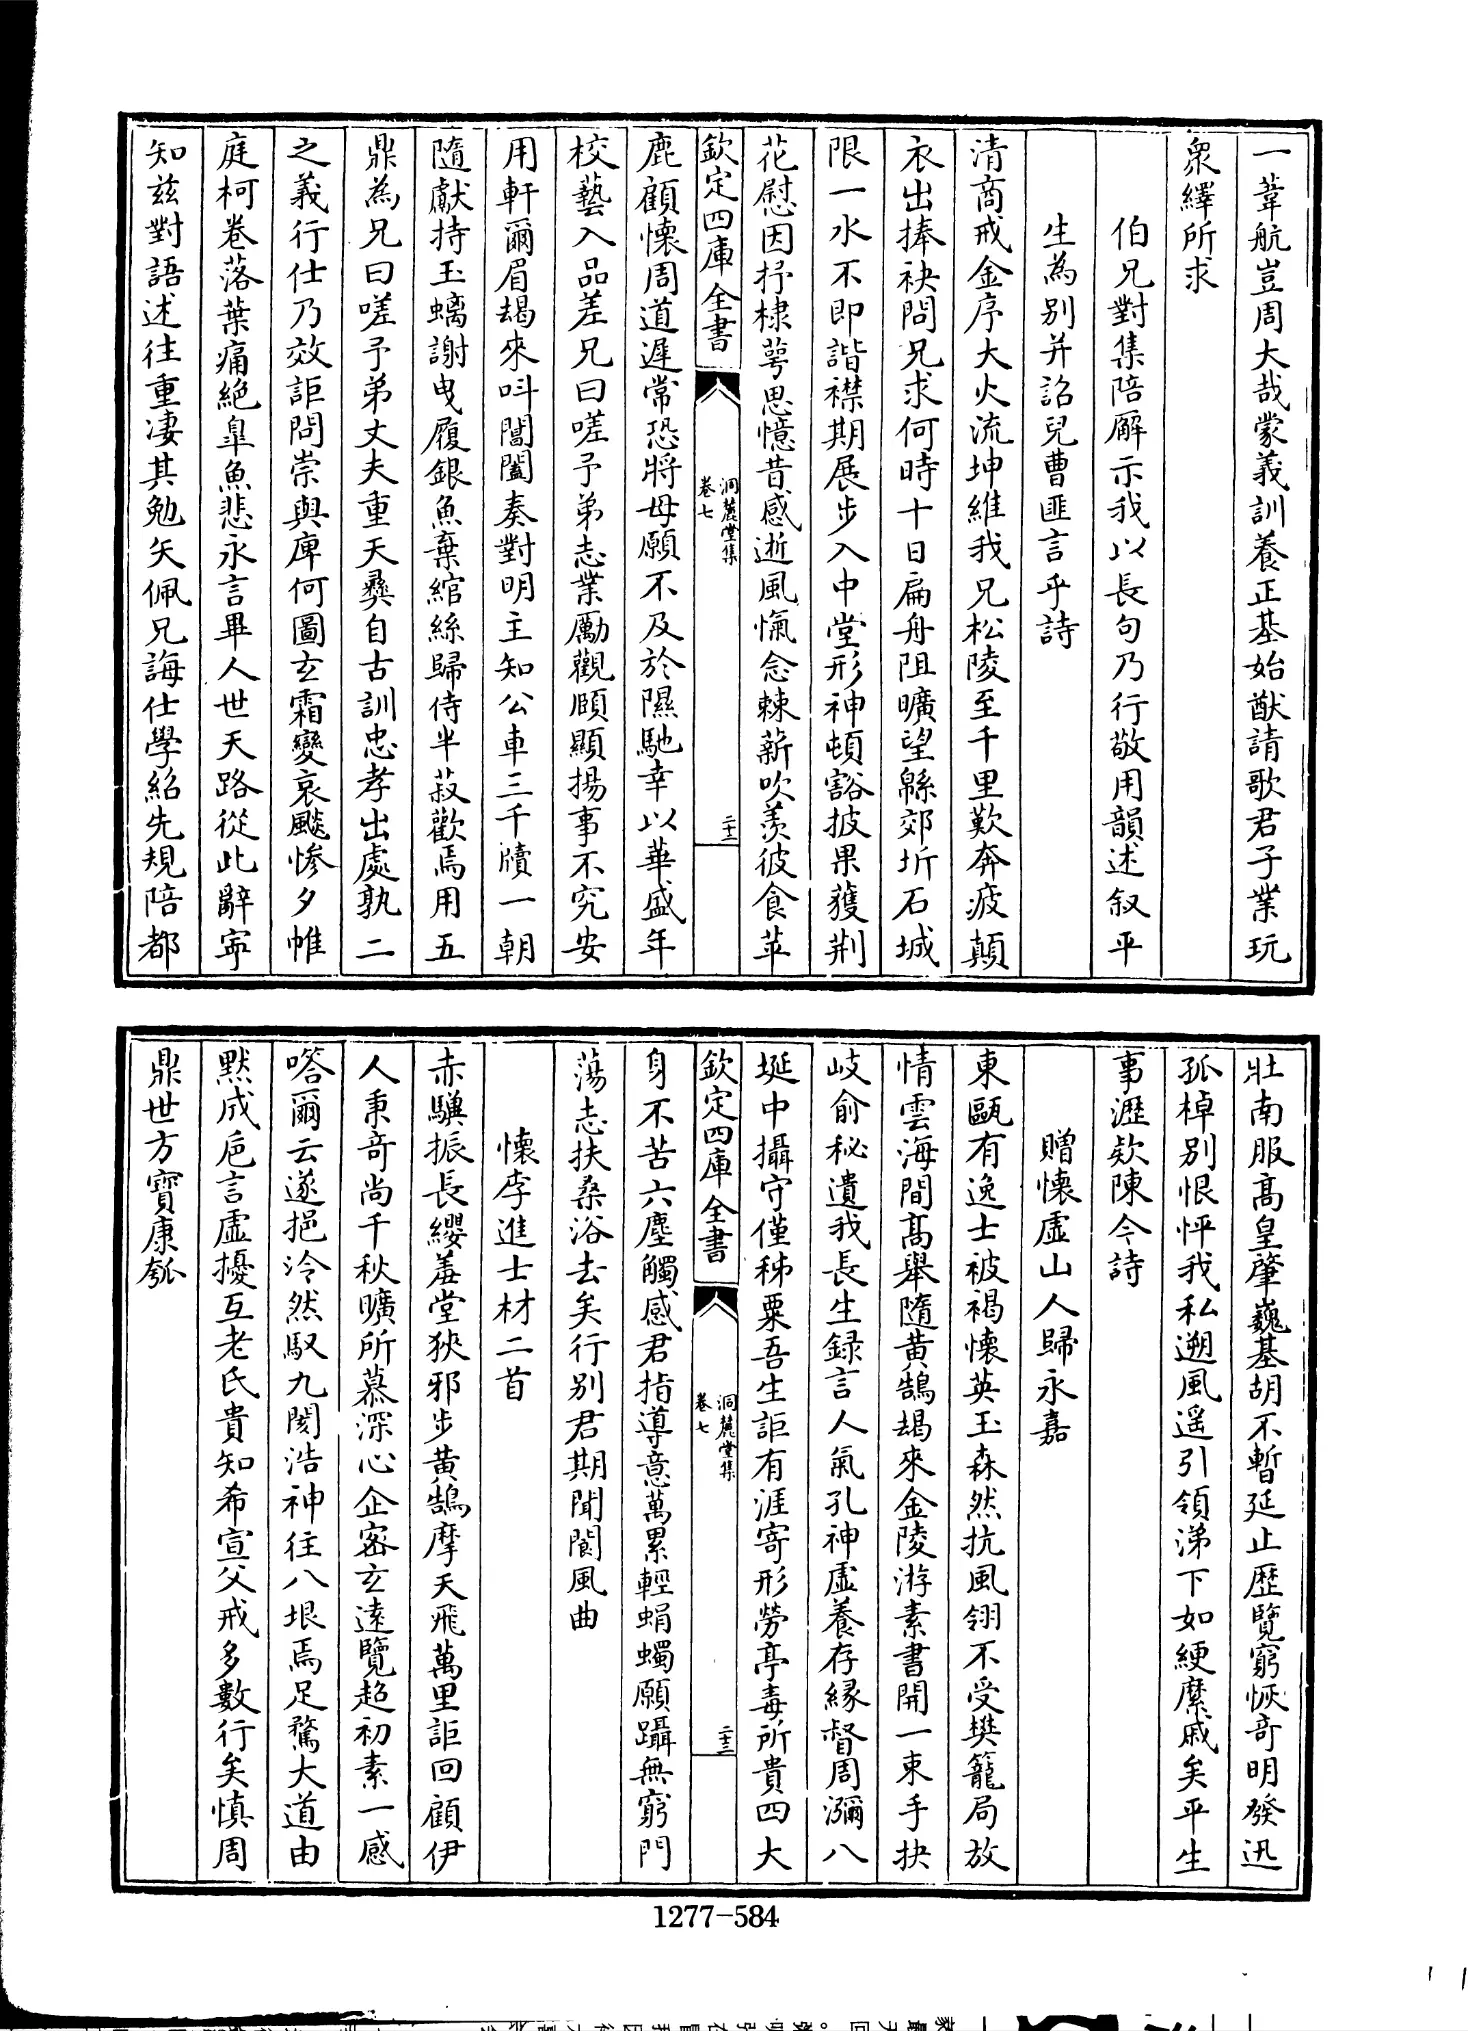 一葦航豈周大哉蒙義訓養正基始猷請歌君子業玩
衆繹所求
伯兄對集陪廨示我以長句乃行敬用韻述叙平
生為別并詒兒曹匪言乎詩
清商戒金序大火流坤維我兄松陵至千里歎奔疲顛
衣出捧袂問兄求何時十日扁舟阻曠望緜郊圻石城
限一水不即諧襟期展步入中堂形神頓豁披果獲荆
花慰因抒棣萼思憶昔感逝風愾念棘薪吹羨彼食苹
欽定四庫全書
洞麓堂集
卷七
二十二
鹿顧懷周道遲常恐將母願不及於隰馳幸以華盛年
校藝入品差兄曰嗟予弟志業勵觀頤顯揚事不究安
用軒爾眉朅來叫閶闔奏對明主知公車三千牘一朝
隨獻持玉螭謝曳履銀魚棄綰絲歸侍半菽歡焉用五
鼎為兄曰嗟予弟丈夫重天彝自古訓忠孝出處孰二
之義行仕乃效詎問崇與庳何圖玄霜變哀飈慘夕帷
庭柯卷落葉痛絕臯魚悲永言畢人世天路從此辭寧
知兹對語述往重凄其勉矢佩兄誨仕學紹先規陪都
壯南服高皇肇巍基胡不暫延止歷覽窮恢奇明發迅
孤棹別恨怦我私遡風遥引領涕下如綆縻戚矣平生
事瀝欵陳今詩
贈懷虛山人歸永嘉
東甌有逸士被褐懷英玉森然抗風翎不受樊籠局放
情雲海間高舉隨黄鵠朅來金陵游素書開一束手抉
岐俞秘遺我長生録言人氣孔神虛養存緣督周瀰八
埏中攝守僅稊粟吾生詎有涯寄形勞亭毒所貴四大
欽定四庫全書
洞麓堂集
卷七
二十三
身不苦六塵觸感君指導意萬累輕蜎蠋願躡無窮門
蕩志扶桑浴去矣行別君期聞閬風曲
懷李進士材二首
赤驥振長纓羞堂狹邪步黄鵠摩天飛萬里詎回顧伊
人秉奇尚千秋曠所慕深心企密玄遠覽超初素一感
嗒爾云遂挹泠然馭九閡浩神往八垠焉足騖大道由
默成巵言虛擾互老氏貴知希宣父戒多數行矣慎周
鼎世方寳康瓠
1277-584